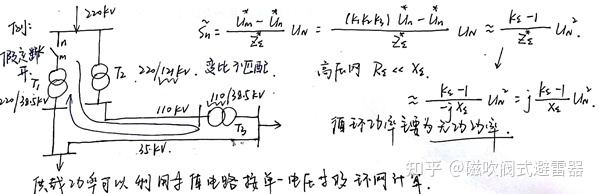 例:
220kV
n
m
假定断
开
T₁
T₂
220/121kV 变比不匹配.
220/38.5kV
110kV
110/38.5kV
T₃
35kV
S̃n = (U̇m* - U̇n*)/ZΣ* UN = ((K₁K₂K₃)U̇n* - U̇n*)/ZΣ* UN ≈ (KΣ-1)/ZΣ* UN².
高压网 RΣ << XΣ.
≈ (KΣ-1)/(-jXΣ) UN² = j (KΣ-1)/XΣ UN²
循环功率主要为无功功率.
供载功率可以利用等值电路按单一电压等级环网计算.
知乎 @磁吹阀式避雷器